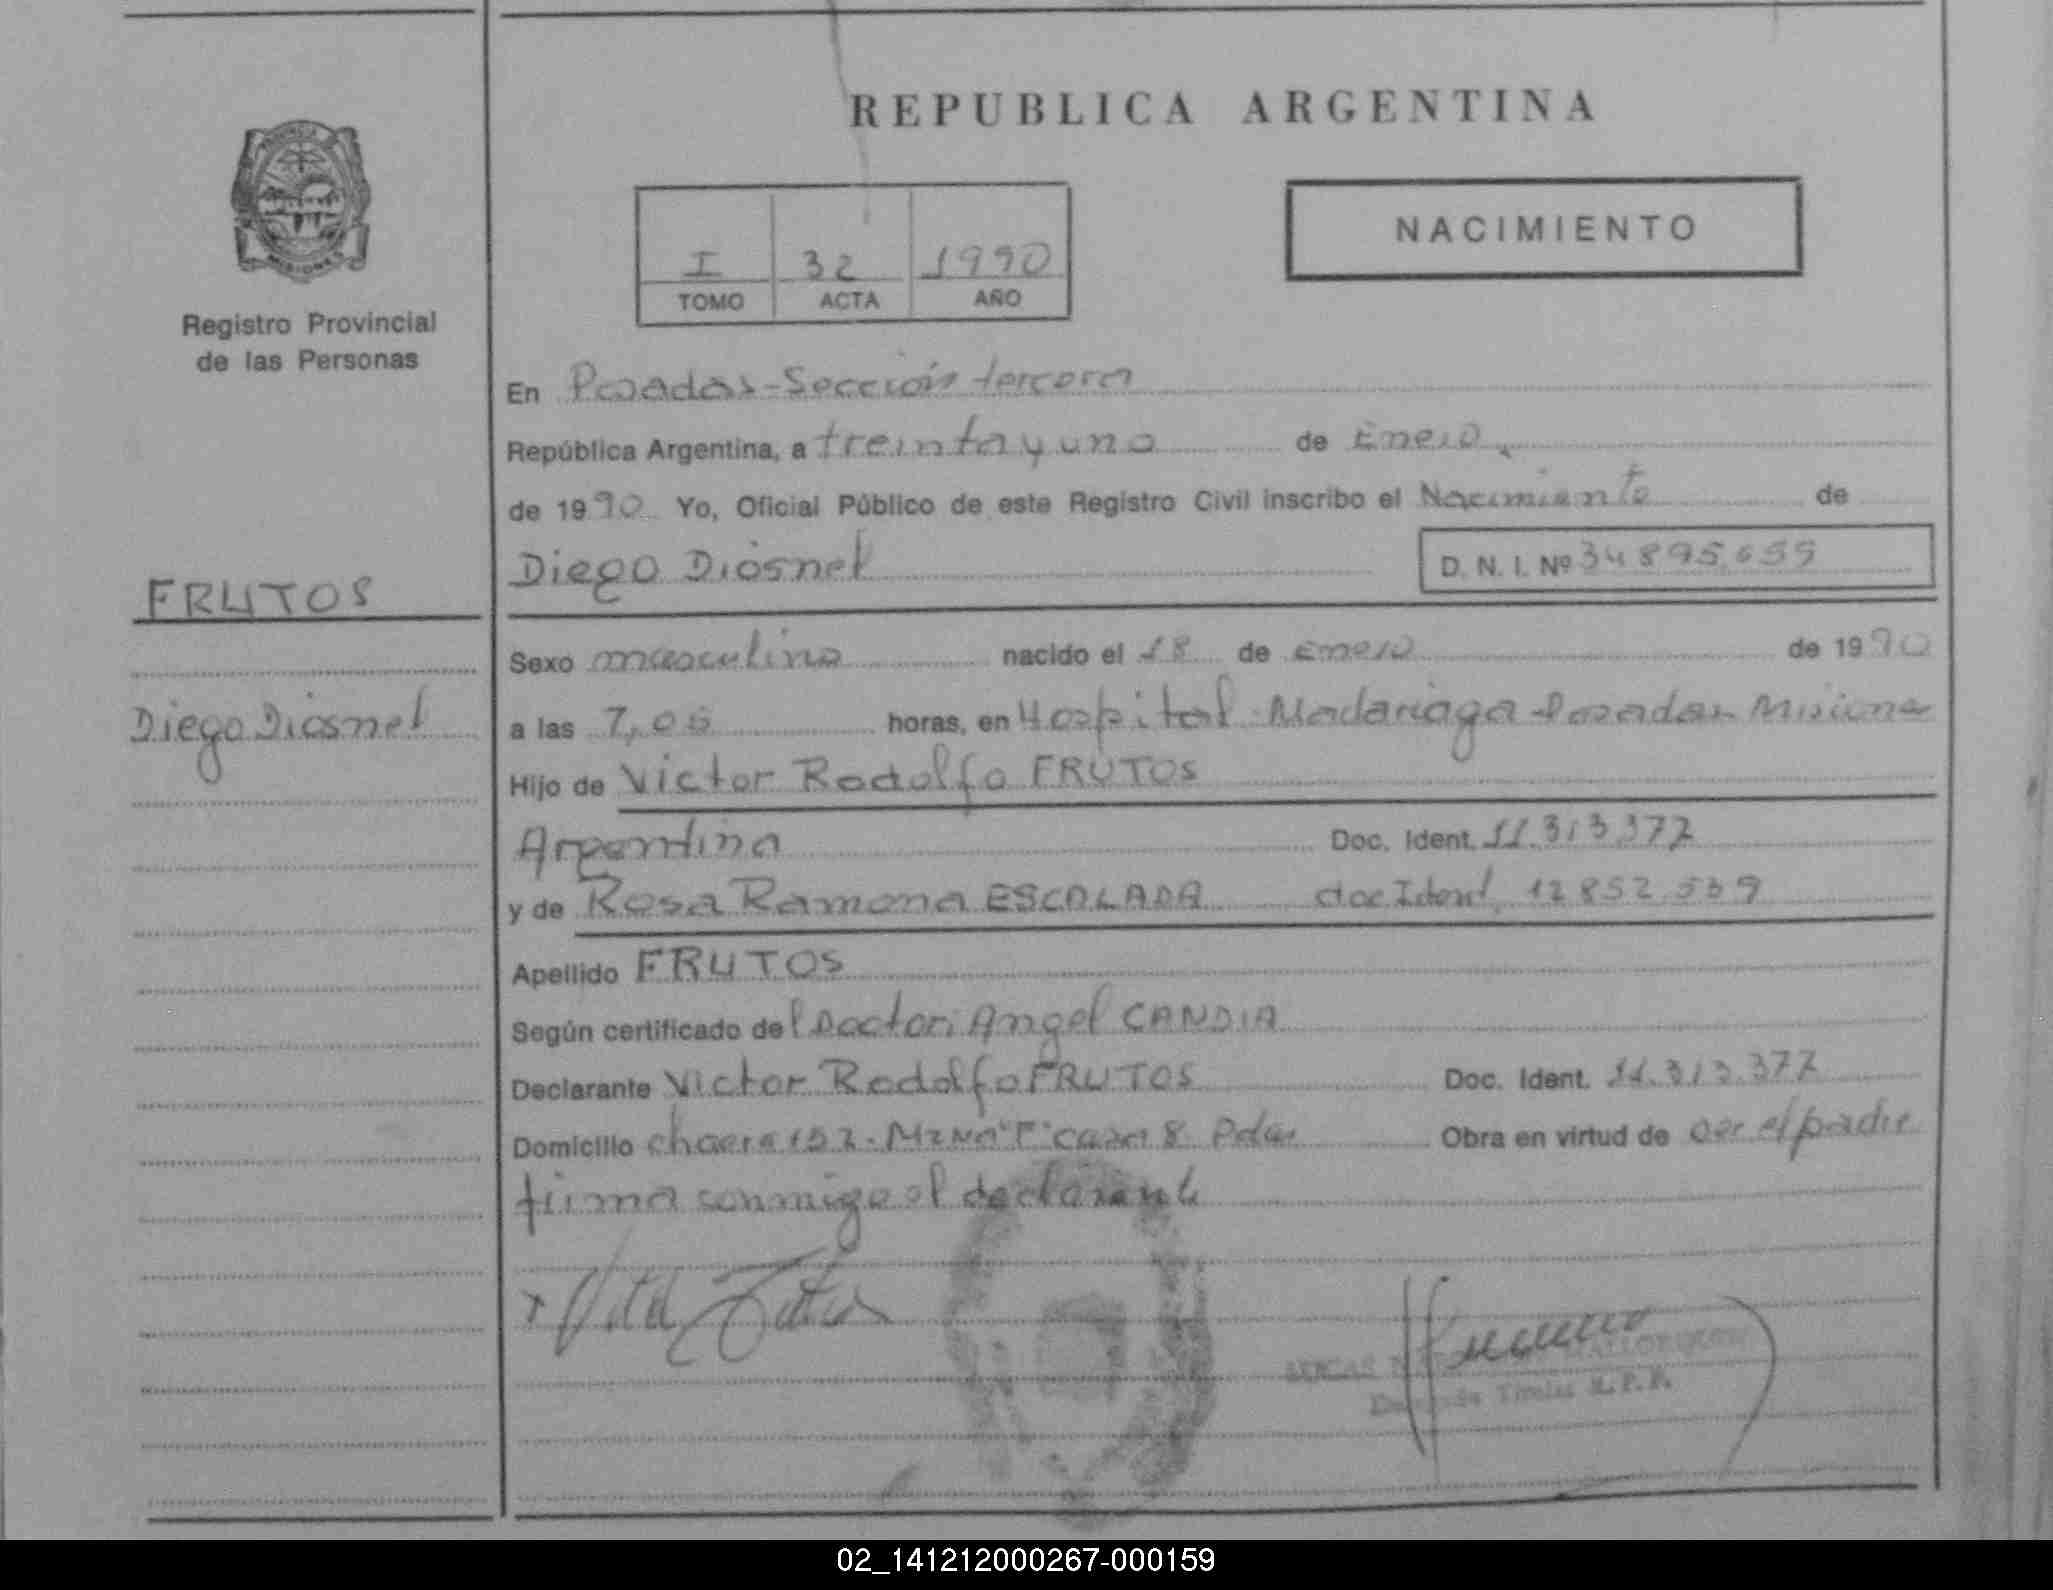 REPUBLICA ARGENTINA
NACIMIENTO
I 32 1990
TOMO ACTA AÑO
PROVINCIA
MISIONES
Registro Provincial
de las Personas
FRUTOS
Diego Diosnel
En Posadas-Sección tercera
República Argentina, a treinta y uno de Enero
de 1990 Yo, Oficial Público de este Registro Civil inscribo el Nacimiento de
Diego Diosnel D. N. I. Nº 34 895.
Sexo masculino nacido el 18 de Enero de 1990
a las 7,05 horas, en Hospital Madariaga-Posadas Misiones
Hijo de Victor Rodolfo FRUTOS
Argentina Doc. Ident. 11.313.377
y de Rosa Ramona ESCALADA doc Ident. 12 852 539
Apellido FRUTOS
Según certificado del Doctor: Angel CANDIA
Declarante Victor Rodolfo FRUTOS Doc. Ident. 11.313.377
Domicilio chacra 152 - Mzna "F" casa 8 Pdas Obra en virtud de ser el padre
firma conmigo el declarante
R. P. P.
02_141212000267-000159